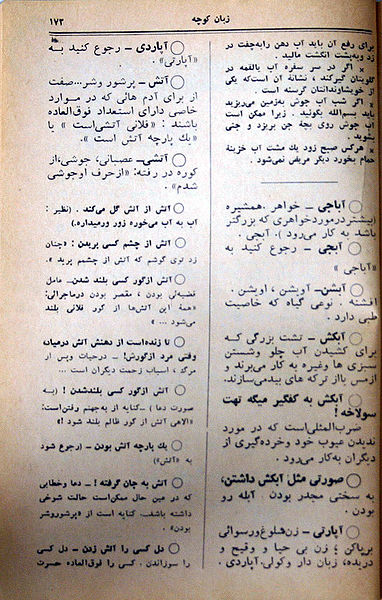 زبان کوچه
۱۷۳
برای رفع آن باید آب دهن را به‌جفت در
زد و به‌پشت انگشت مالید.
× اگر در سر سفره آب بالقمه در
گلویتان گیر کند، نشانهٔ آن است‌که یکی
از خویشاوندانتان گرسنه است.
× اگر شب آب جوش به‌زمین می‌ریزید
باید بسم‌الله بگوئید. زیرا ممکن است
آب جوش روی بچه جن بریزد و جنی
بشوید
× هرکس صبح زود یك مشت آب خزینهٔ
حمام بخورد دیگر مریض نمی‌شود.
آباجی – خواهر. همشیره
(بیشتر در مورد خواهری که بزرگتر
باشد به کار می‌رود). آبجی.
آبجی – رجوع کنید به
«آباجی»
آبشن – آویشن، اویشن.
افشنه. نوعی گیاه که خاصیت
طبی دارد.
آبکش – تشت بزرگی که
برای کشیدن آب چلو وشستن
سبزی ها وغیره به کار می‌برند و
ازمس یا از ترکه های بیدمی‌سازند.
آبکش به کفگیر میگه تهت
سولاخه!
ضرب‌المثلی‌است که در مورد
ندیدن عیوب خود وخرده‌گیری از
دیگران به‌کار می‌رود.
صورتی مثل آبکش داشتن،
به سختی مجدر بودن. آبله رو
بودن.
آپارتی – زن‌شلوغ‌ورسوائی
برپاکن؛ زن بی حیا و وقیح و
دریده، زبان دار وکولی. آپاردی.
آپاردی – رجوع کنید به
«آپارتی».
آتش – پرشور وشر...صفت
از برای آدم هائی که در موارد
خاصی دارای استعداد فوق‌العاده
باشند: «فلانی آتشی‌است» یا
«یك پارچه آتش است».
آتشی – عصبانی، جوشی، از
کوره در رفته: «ازحرف اوجوشی
شدم».
آتش از آتش گل می‌کند. (نظیر:
آب به آب می‌خوره زور ورمیداره.)
آتش از چشم کسی پریدن: «چنان
زد توی گوشم که آتش از چشمم پرید».
آتش ازگور کسی بلند شدن.. عامل
قضیه‌ئی بودن، مقصر بودن درماجرائی:
«همهٔ این آتش‌ها از گور فلانی بلند
می‌شود ...»
تا زنده‌است از دهنش آتش درمیاد،
وقتی مرد ازگورش! – درحیات وپس از
مرگ، اسباب زحمت دیگران است...
آتش ازگور کسی بلندشدن! (به
صورت دعا) – کنایه از به‌جهنم رفتن‌است:
«الاهی آتش از گور ظالم بلند شود!»
یك پارچه آتش بودن – (رجوع شود
به «آتش»)
آتش به جان گرفته! – دعا وخطابی
که در عین حال ممکن‌است حالت شوخی
داشته باشد. کنایه است از «پرشوروشر
بودن».
دل کسی را آتش زدن – دل کسی
را سوزاندن. کسی را فوق‌العاده حسرت